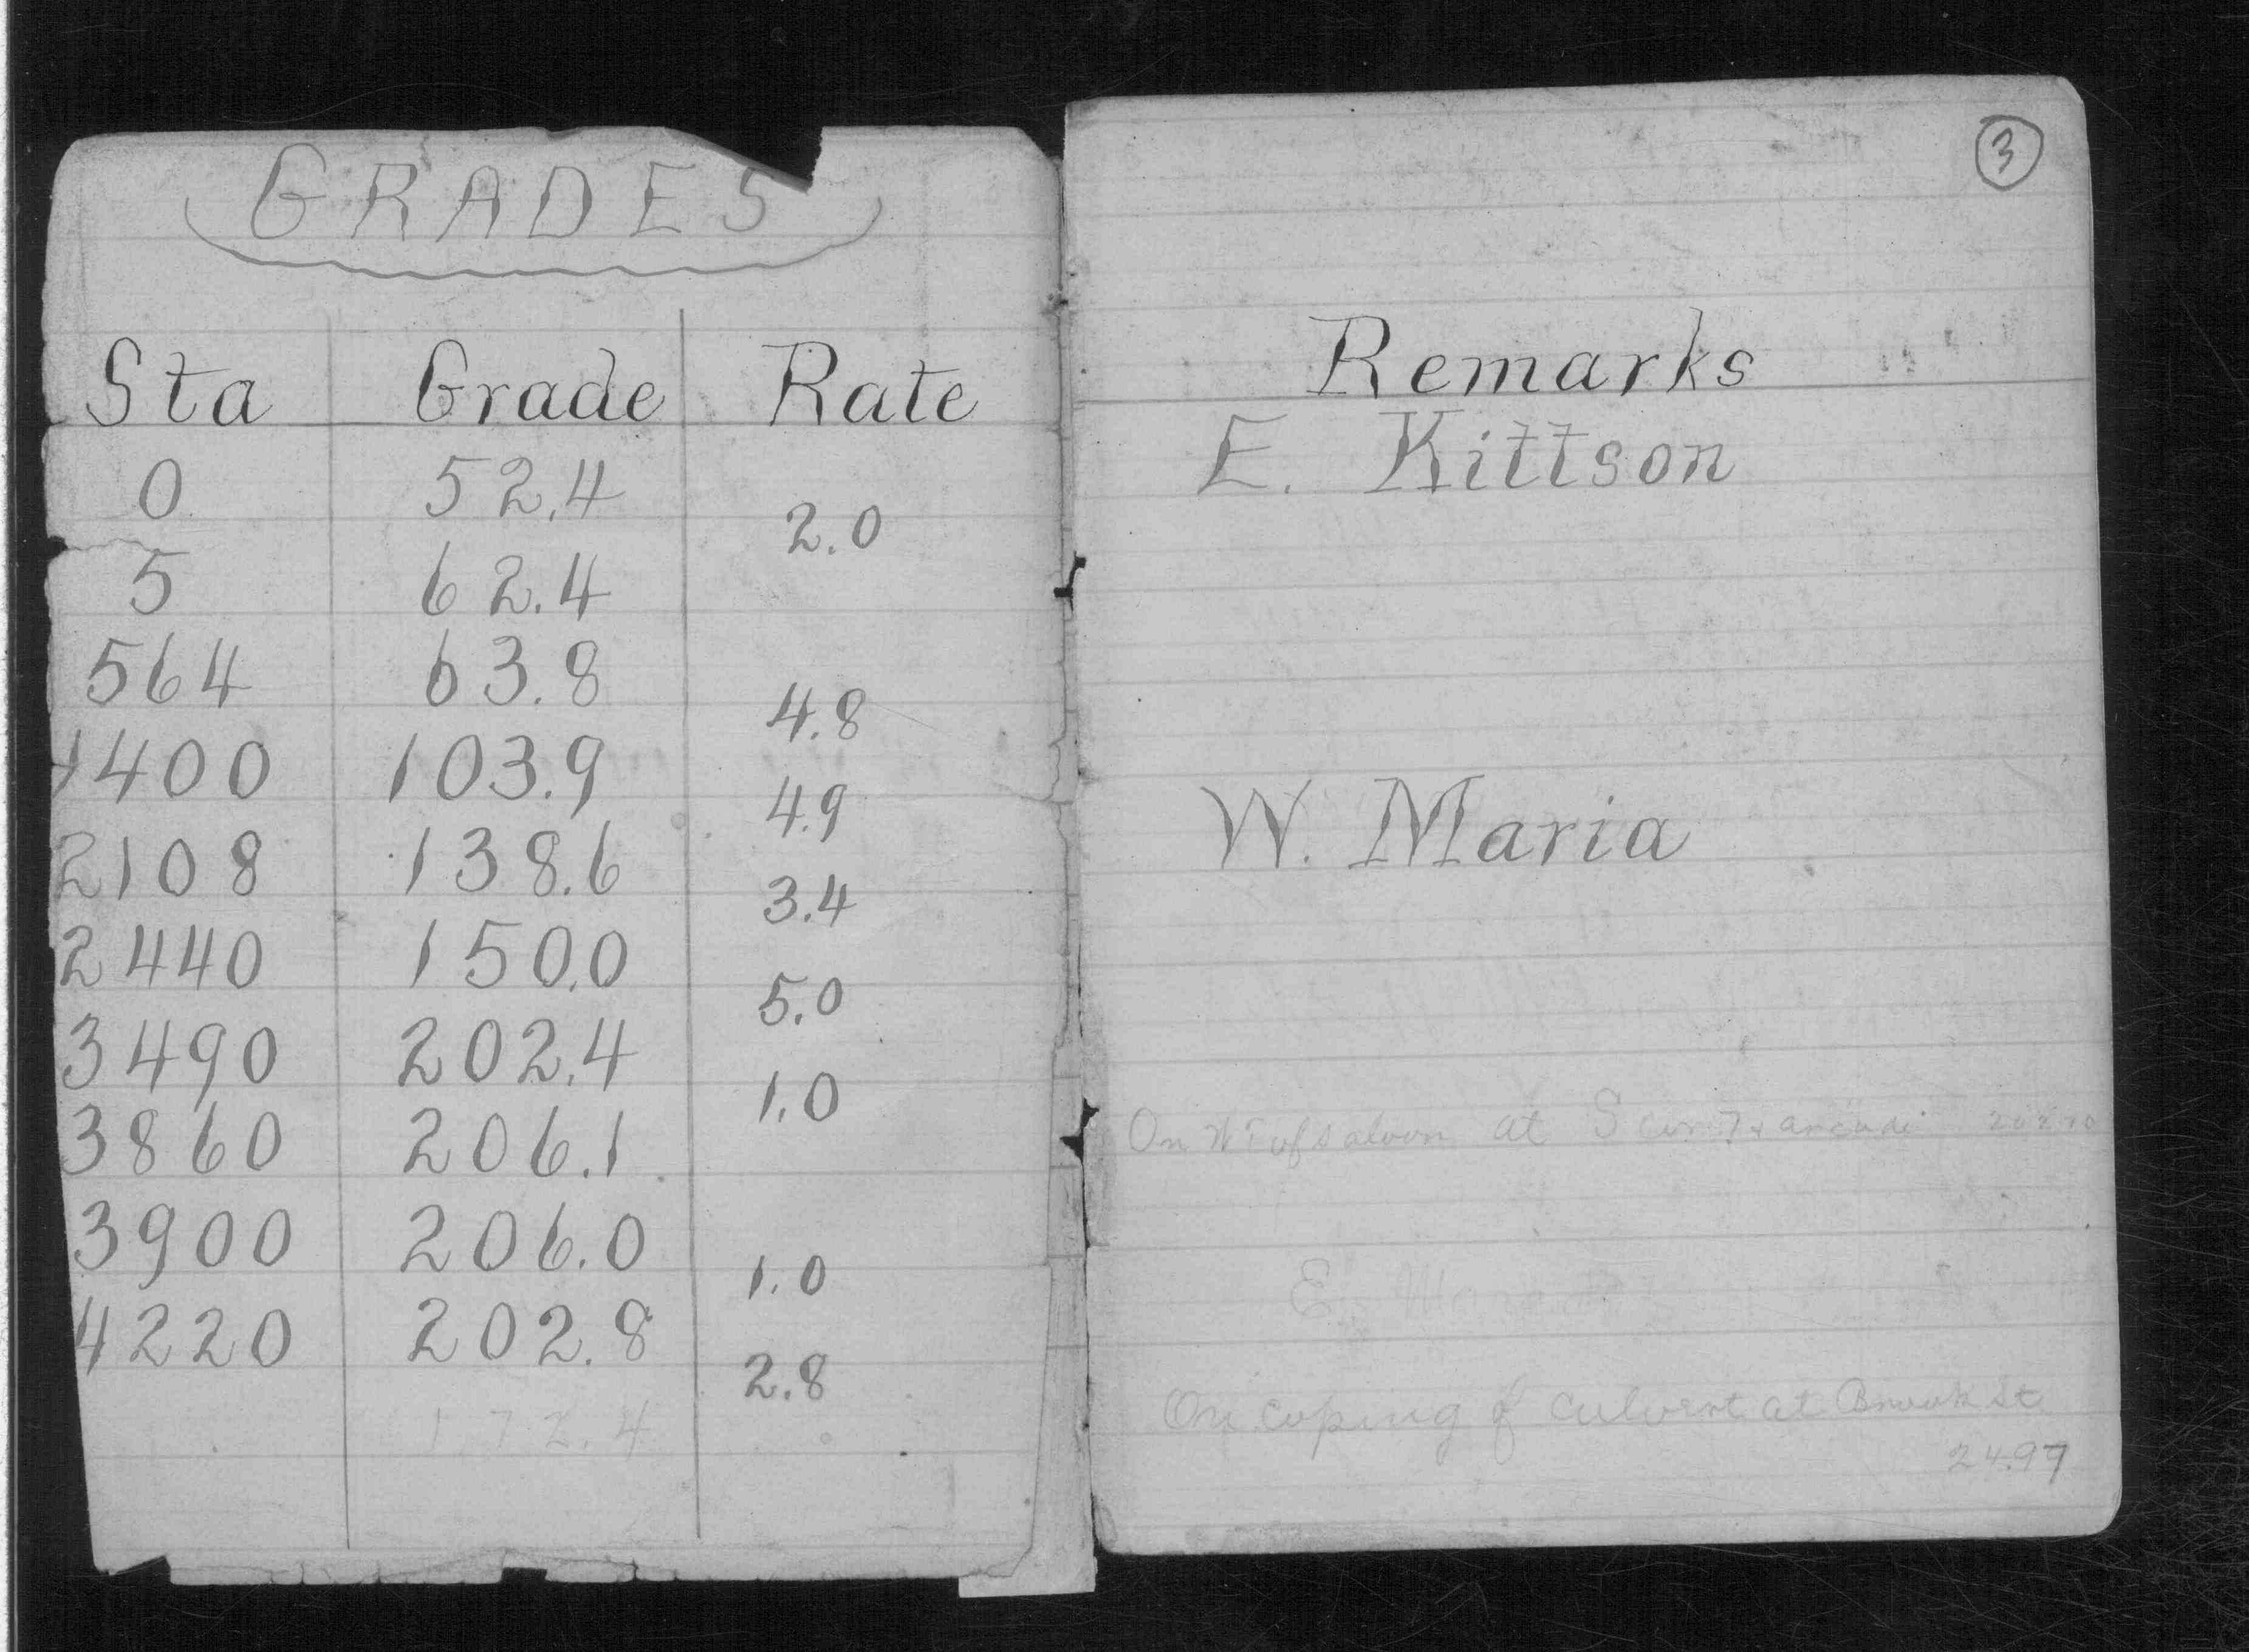 GRADES
Sta Grade Rate
0 52.4
2.0
5 62.4
564 63.8
4.8
1400 103.9
4.9
2108 138.6
3.4
2440 150.0
5.0
3490 202.4
1.0
3860 206.1
3900 206.0
1.0
4220 202.8
2.8
172.4
3
Remarks
E. Kittson
W. Maria
On at S
E.
On coping of culvert at Brook St
24.97